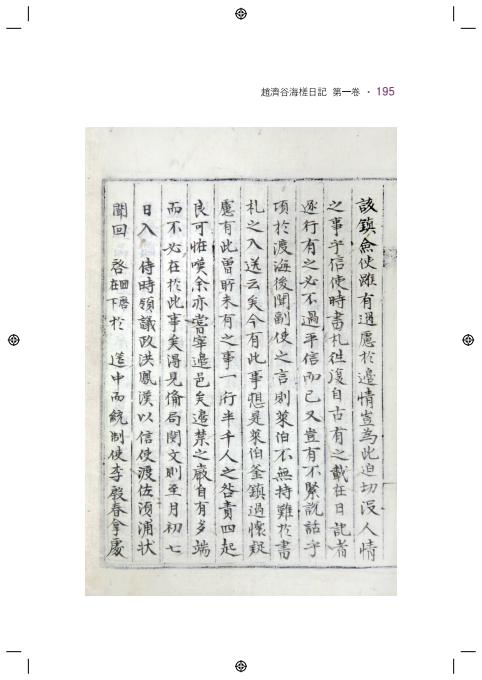 趙濟谷海槎日記 第一卷 · 195
該鎮僉使雖有過慮於邊情豈為此迫切沒人情
之事乎信使時書札徃復自古有之載在日記者
逐行有之必不過平信而已又豈有不緊說話乎
項於渡海後聞副使之言則萊伯不無持難於書
札之入送云矣今有此事想是萊伯釜鎮過懷疑
慮有此曾所未有之事一行半千人之咎責四起
良可恠嘆余亦嘗宰邊邑矣邊禁之嚴自有多端
而不必在於此事矣得見備局関文則至月初七
日入 侍時領議政洪鳳漢以信使渡佐湏浦状
聞回 啓在下於 筵中而統制使李殷春拿處
回啓